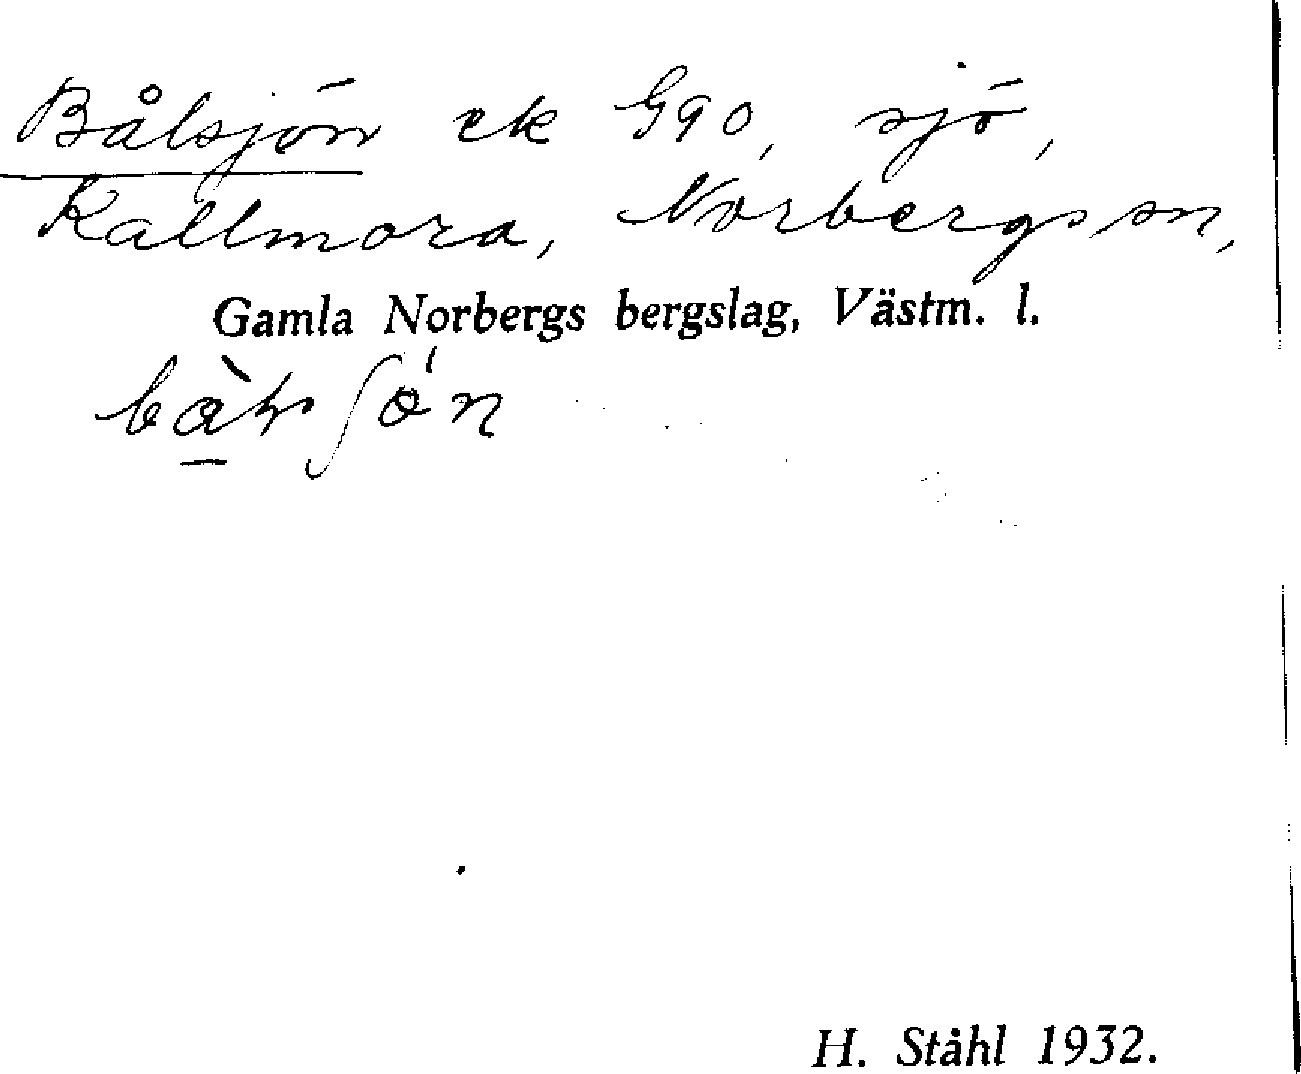 Bålsjön ek G90, sjö,
Kallmora, Norbergs sn,
Gamla Norbergs bergslag, Västm. l.
H. Ståhl 1932.